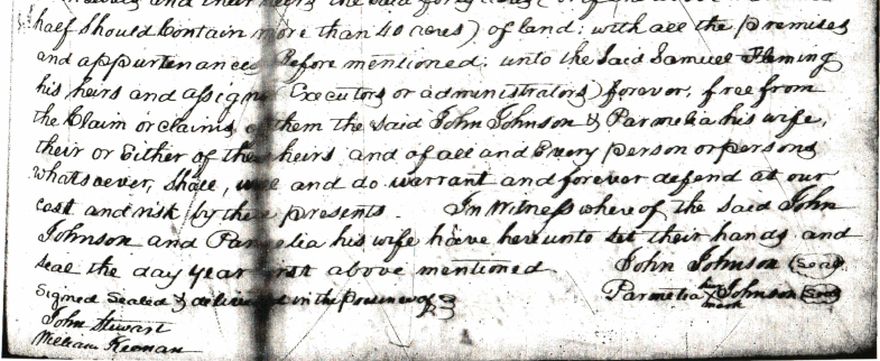 and their heirs the said forty acres (or if the above
half should Contain more than 40 acres) of land; with all the premises
and appurtenances Before mentioned; unto the Said Samuel Fleming
his heirs and assigns (Executors or administrators) forever, free from
the Claim or claims of them the said John Johnson & Parmelia his wife,
their or Either of their heirs and of all and Every person or persons
whatsoever, Shall, will and do warrant and forever defend at our
cost and risk by these presents. In Witness where of the said John
Johnson and Parmelia his wife have here unto set their hands and
seal the day year first above mentioned John Johnson (Seal)
Signed Sealed & delivered in the Presence of Parmelia her X mark Johnson (Seal)
John Stewart
William Keenan